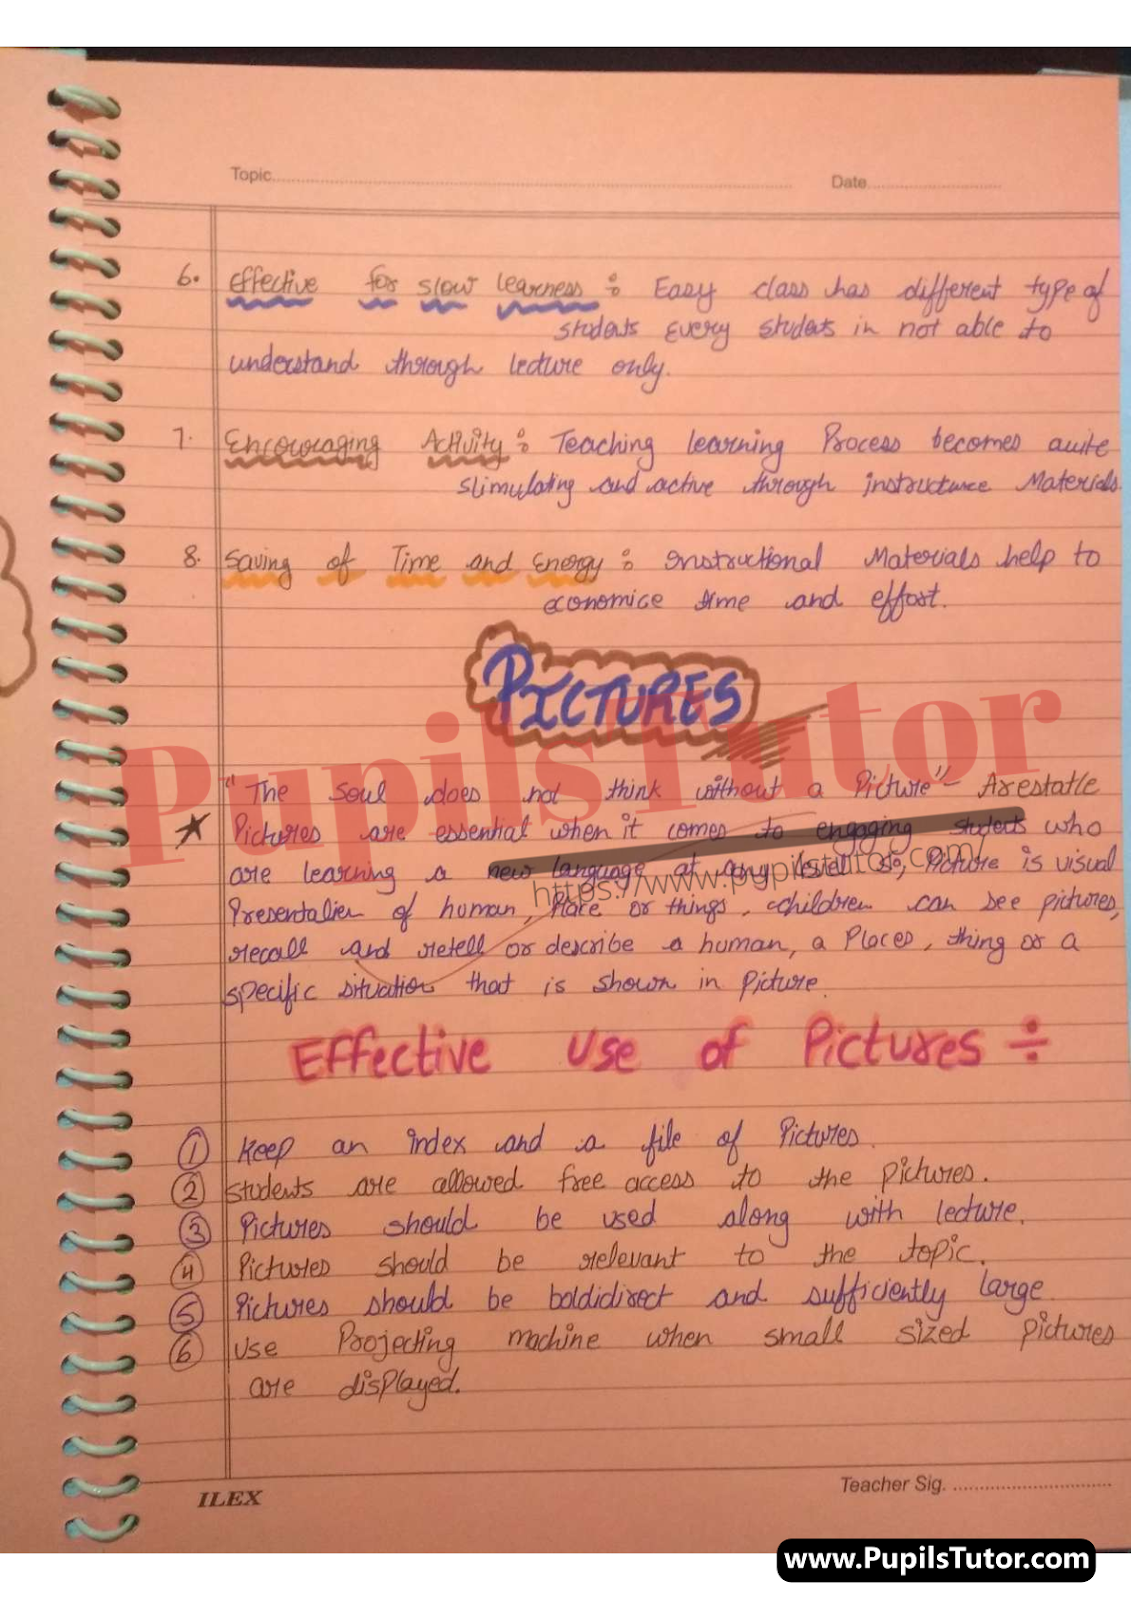 Topic............ Date............
6. Effective for slow learness : Easy class has different type of
students Every students in not able to
understand through lecture only.
7. Encouraging Activity : Teaching learning Process becomes quite
stimulating and active through instructunce Materials.
8. Saving of Time and Energy : Instructional Materials help to
economice time and effort.
PICTURES
PupilsTutor
"The Soul does not think without a Picture" - Arestatle
Pictures are essential when it comes to engaging students who
are learning a new language at any level so, Picture is visual
https://www.pupilstutor.com/
Presentation of human, Place or things, children can see pictures,
recall and retell or describe a human, a Places, thing or a
specific situation that is shown in Picture.
Effective Use of Pictures ÷
1 Keep an index and a file of Pictures.
2 Students are allowed free access to the pictures.
3 Pictures should be used along with lecture.
4 Pictures should be relevant to the topic.
5 Pictures should be boldidirect and sufficiently large.
6 Use Projecting machine when small sized pictures
are displayed.
ILEX
Teacher Sig. ............
www.PupilsTutor.com